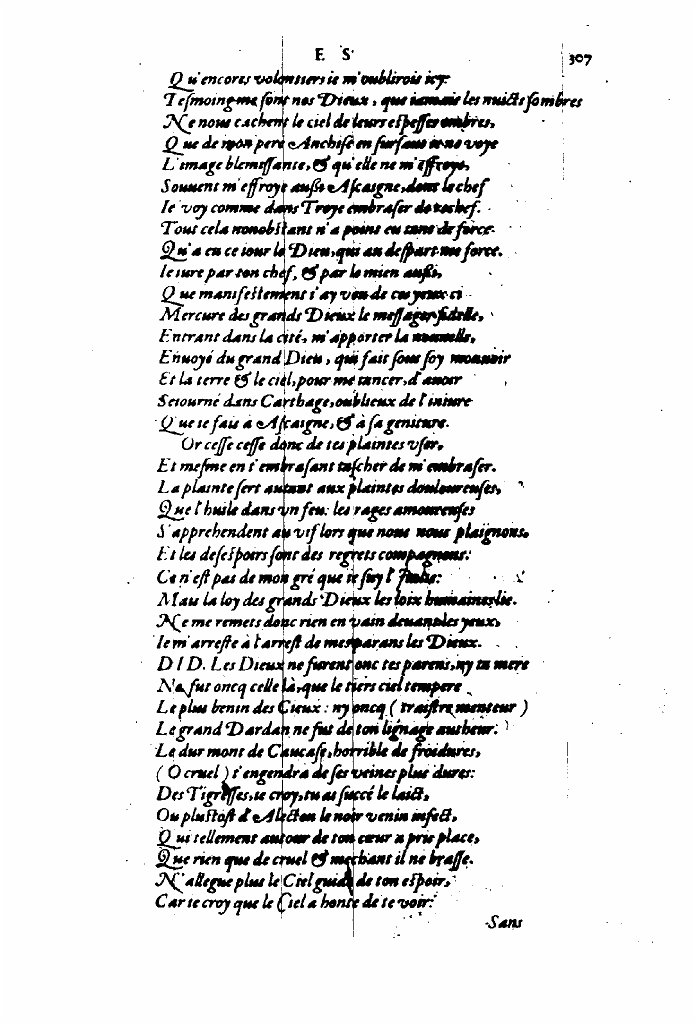 E S
307
Qu'encores volontiers ie m'oublirois icy.
Tesmoing me sont nos Dieux, que iamais les nuicts sombres
Ne nous cachent le ciel de leurs espesses ombres,
Que de mon pere Anchise en sursaus ie ne voye
L'image blemissante, & qu'elle ne m'effroye,
Souuent m'effroye aussi Ascaigne, dont le chef
Ie voy comme dans Troye embraser de rechef.
Tous cela nonobstant n'a point eu tant de force
Qu'a eu ce iour le Dieu, qui au despart me force.
Ie iure par ton chef, & par le mien aussi,
Que manifestement i'ay veu de ces yeux ci
Mercure des grands Dieux le messager fidelle,
Entrant dans la cité, m'apporter la nouuelle,
Enuoyé du grand Dieu, qui fait sous soy mouuoir
Et la terre & le ciel, pour me tancer, d'auoir
Seiourné dans Carthage, oublieux de l'iniure
Que ie fais à Ascaigne, & à sa geniture.
Or cesse cesse donc de tes plaintes vser,
Et mesme en t'embrasant tascher de m'embraser.
La plainte sert autant aux plaintes douloureuses,
Que l'huile dans vn feu: les rages amoureuses
S'apprehendent au vif lors que nous nous plaignons,
Et les desespoirs sont des regrets compagnons:
Ce n'est pas de mon gré que ie suy l'Italie:
Mais la loy des grands Dieux les loix humaines lie.
Ne me remets donc rien en vain deuant les yeux,
Ie m'arreste à l'arrest de mes parans les Dieux.
DID. Les Dieux ne furent onc tes parens, ny ta mere
Ne fut oncq celle là, que le tiers ciel tempere
Le plus benin des Cieux: ny oncq (traistre menteur)
Le grand Dardan ne fut de ton lignage autheur:
Le dur mont de Caucase, horrible de froidures,
(O cruel) t'engendra de ses veines plus dures:
Des Tigresses, ie croy, tu as succé le laict,
Ou plustost d'Alecton le noir venin infect,
Qui tellement autour de ton cœur a pris place,
Que rien que de cruel & mechant il ne brasse.
N'allegue plus le Ciel guide de ton espoir,
Car ie croy que le Ciel a honte de te voir:
Sans